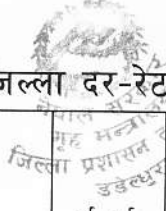 जिल्ला दर-रेट
नेपाल सरकार
गृह मन्त्रालय
जिल्ला प्रशासन
डडेल्धुरा